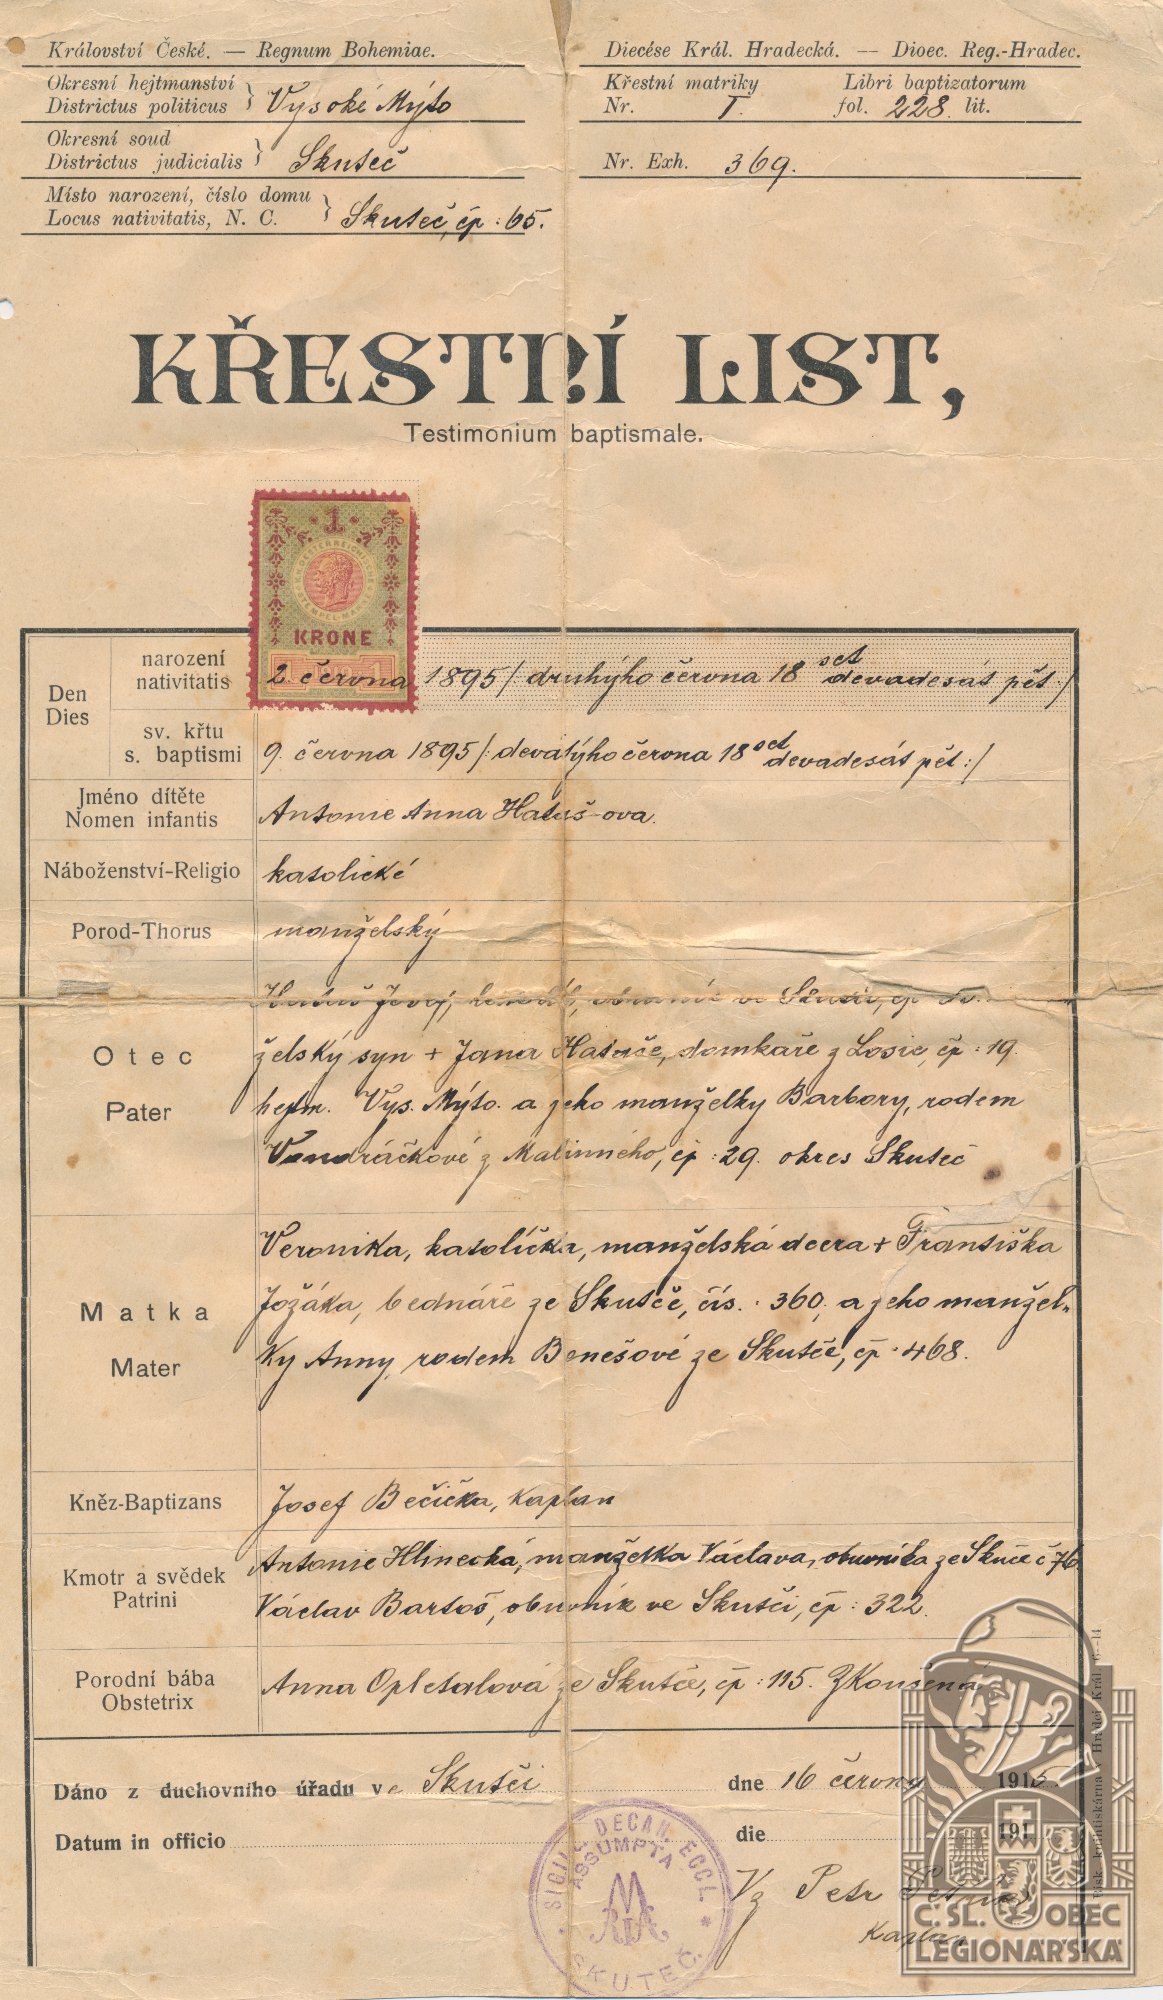 Království České. — Regnum Bohemiae.
Okresní hejtmanství
Districtus politicus } Vysoké Mýto
Okresní soud
Districtus judicialis } Skuteč
Místo narození, číslo domu
Locus nativitatis, N. C. } Skuteč, čp : 65.
Diecése Král. Hradecká. — Dioec. Reg.-Hradec.
Křestní matriky Libri baptizatorum
Nr. I. fol. 228. lit.
Nr. Exh. 369.
KŘESTNÍ LIST,
Testimonium baptismale.
1
KRONE
Den
Dies
narození
nativitatis
2. června 1895 /: druhýho června 18 set devadesát pět :/
sv. křtu
s. baptismi
9. června 1895 /: devatýho června 18 set devadesát pět :/
Jméno dítěte
Nomen infantis
Antonie Anna Hataš-ova.
Náboženství-Religio katolické
Porod-Thorus manželský
Otec
Pater
ve Skutči, čp
želský syn + Jana Hataše, domkáře z Losic, čp : 19.
hejtm. Vys. Mýto. a jeho manželky Barbory, rodem
Vondráčkové z Malinného, čp : 29. okres Skuteč
Matka
Mater
Veronika, katolička, manželská dcera + Františka
Jožáka, bednáře ze Skutče, čís. : 360, a jeho manžel-
ky Anny, rodem Benešové ze Skutče, čp : 468.
Kněz-Baptizans Josef Bečička, kaplan
Kmotr a svědek
Patrini
Antonie Hlinecká, manželka Václava, obuvníka ze Skutče č 76.
Václav Bartoš, obuvník ve Skutči, čp : 322.
Porodní bába
Obstetrix
Anna Opletalová ze Skutče, čp : 115. Zkoušená
Dáno z duchovního úřadu ve Skutči dne 16 června 1915.
Datum in officio die 191
SIGILL. DECAN. ECCL.
ASSUMPTA
MARIA
* SKUTEČ *
Vz Petr
Kaplan
Bisk. knihtiskárna v Hradci Král. 6.—14
Č. SL. OBEC
LEGIONÁŘSKÁ